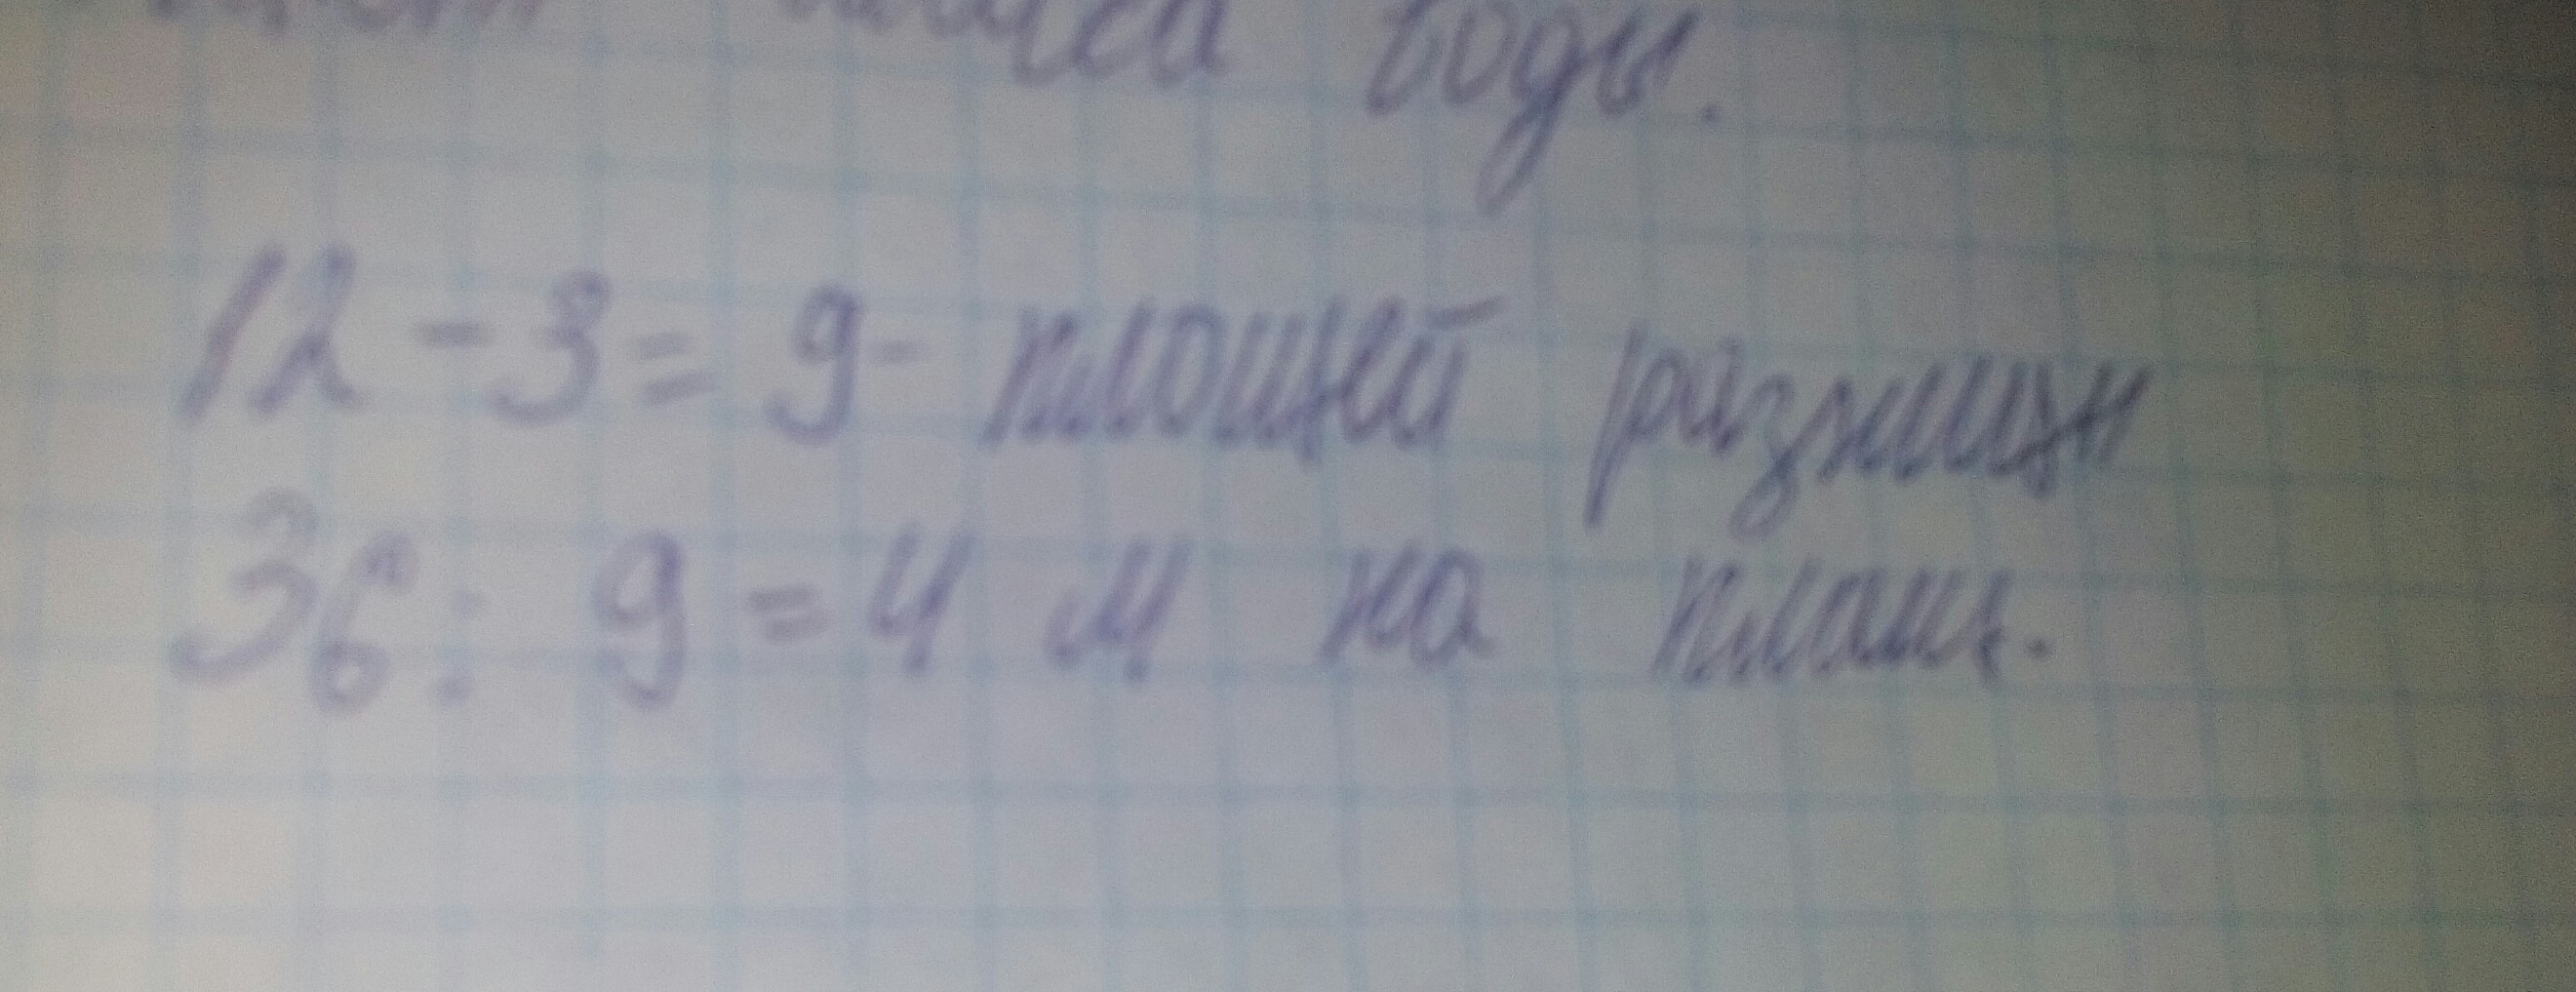 масса воды.
12 - 3 = 9 - площей разници
36 : 9 = 4 м на плащ.